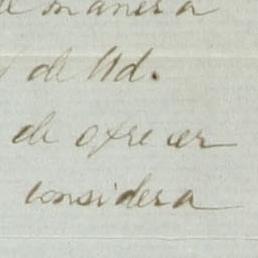 de manera
de Ud.
de ofrecer
considera